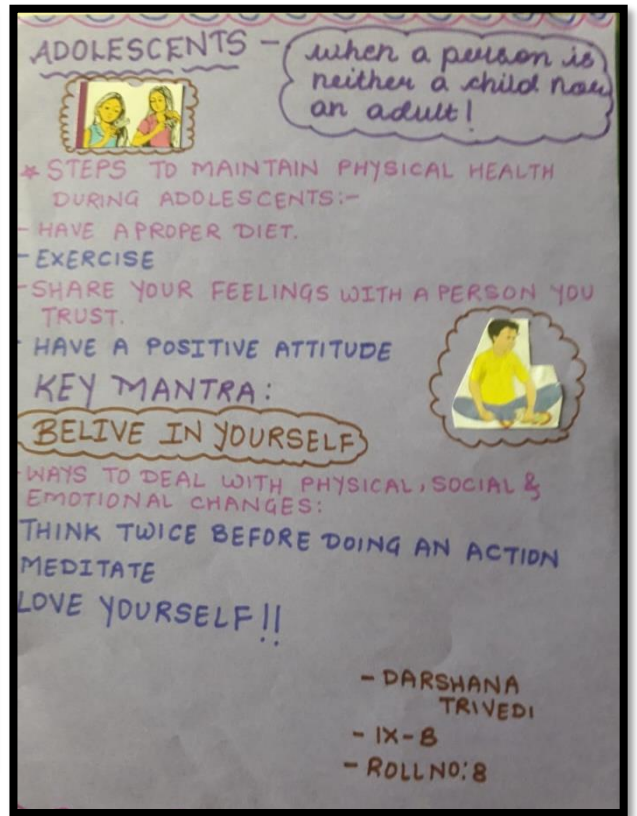 ADOLESCENTS -
when a person is
neither a child nor
an adult!
* STEPS TO MAINTAIN PHYSICAL HEALTH
DURING ADOLESCENTS:-
- HAVE A PROPER DIET.
- EXERCISE
- SHARE YOUR FEELINGS WITH A PERSON YOU
TRUST.
- HAVE A POSITIVE ATTITUDE
KEY MANTRA:
BELIVE IN YOURSELF
- WAYS TO DEAL WITH PHYSICAL, SOCIAL &
EMOTIONAL CHANGES:
THINK TWICE BEFORE DOING AN ACTION
MEDITATE
LOVE YOURSELF!!
- DARSHANA
TRIVEDI
- IX-B
- ROLL NO:8